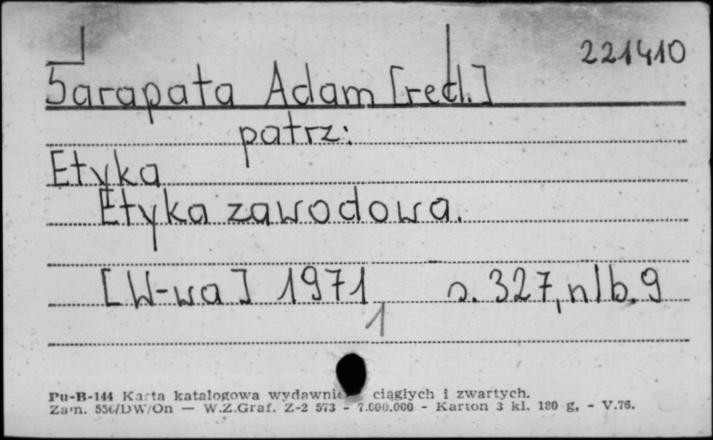 221410
Sarapata Adam [red.]
patrz:
Etyka
Etyka zawodowa.
[W-wa] 1971 s. 327, nlb. 9
1
Pu-B-144 Karta katalogowa wydawnic ciągłych i zwartych.
Zam. 556/DW/On — W.Z.Graf. Z-2 573 - 7.000.000 - Karton 3 kl. 180 g, - V.76.